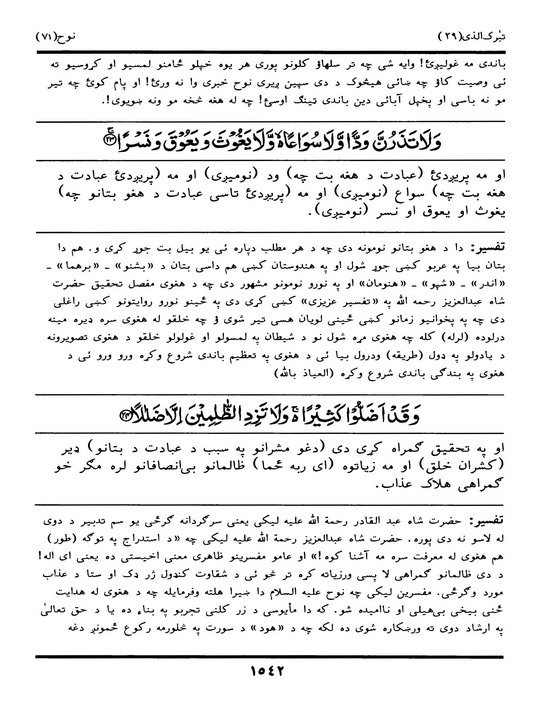 تبٰرك الذی (٢٩)
نوح (٧١)
باندی مه غولیږئ! وایه شی چه تر سلهاؤ کلونو پوری هر یوه خپلو ځامنو لمسیو او کروسیو ته
ئی وصیت کاؤ چه ښائی هیڅوک د دی سپین ږیری نوح خبری وا نه وری! او پام کوئ چه تیر
مو نه باسی او پخپل آبائی دین باندی ټینګ اوسئ! چه له هغه څخه مو ونه ښویوی!.
وَلَا تَذَرُنَّ وَدًّا وَّلَا سُوَاعًا ۙ وَّلَا يَغُوْثَ وَيَعُوْقَ وَنَسْرًا ۚ ﴿٢٣﴾
او مه پریږدئ (عبادت د هغه بت چه) ود (نومیږی) او مه (پریږدئ عبادت د
هغه بت چه) سواع (نومیږی) او مه (پریږدئ تاسی عبادت د هغو بتانو چه)
یغوث او یعوق او نسر (نومیږی).
تفسیر: دا د هغو بتانو نومونه دی چه د هر مطلب دپاره ئی یو بیل بت جوړ کړی و. هم دا
بتان بیا په عربو کښی جوړ شول او په هندوستان کښی هم داسی بتان د «بشنو» ـ «برهما» ـ
«اندر» ـ «شیو» ـ «هنومان» او په نورو نومونو مشهور دی چه د هغوی مفصل تحقیق حضرت
شاه عبدالعزیز رحمة الله په «تفسیر عزیزی» کښی کړی دی په ځینو نورو روایتونو کښی راغلی
دی چه په پخوانیو زمانو کښی ځینی لویان هسی تیر شوی ؤ چه خلقو له هغوی سره ډیره مینه
درلوده (لرله) کله چه هغوی مړه شول نو د شیطان په لمسولو او غولولو خلقو د هغوی تصویرونه
د یادولو په ډول (طریقه) ودرول بیا ئی د هغوی په تعظیم باندی شروع وکړه ورو ورو ئی د
هغوی په بندګی باندی شروع وکړه (العیاذ بالله)
وَقَدْ اَضَلُّوْا كَثِيْرًا ۚ وَلَا تَزِدِ الظّٰلِمِيْنَ اِلَّا ضَلٰلًا ﴿٢٤﴾
او په تحقیق ګمراه کړی دی (دغو مشرانو په سبب د عبادت د بتانو) ډیر
(کشران خلق) او مه زیاتوه (ای ربه ځما) ظالمانو بی‌انصافانو لره مګر خو
ګمراهی هلاک عذاب.
تفسیر: حضرت شاه عبد القادر رحمة الله علیه لیکی یعنی سرګردانه ګرځی یو سم تدبیر د دوی
له لاسو نه دی پوره. حضرت شاه عبدالعزیز رحمة الله علیه لیکی چه «د استدراج په توګه (طور)
هم هغوی له معرفت سره مه آشنا کوه!» او عامو مفسرینو ظاهری معنی اخیستی ده یعنی ای اله!
د دی ظالمانو ګمراهی لا پسی ورزیاته کړه تر څو ئی د شقاوت کنډول ژر ډک او ستا د عذاب
مورد وګرځی. مفسرین لیکی چه نوح علیه السلام دا ښیرا هلته وفرمایله چه د هغوی له هدایت
ځنی بیخی بی‌هیلی او ناامیده شو. که دا مأیوسی د زر کلنی تجربو په بناء ده یا د حق تعالیٰ
په ارشاد دوی ته ورښکاره شوی ده لکه چه د «هود» د سورت په څلورمه رکوع ځمونږ دغه
١٥٤٢